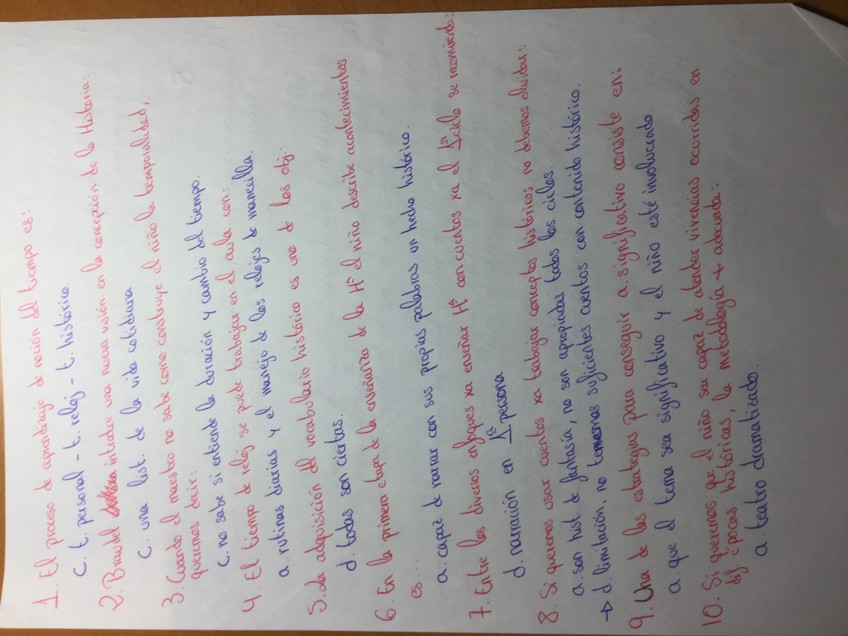 1. El proceso de aprendizaje de noción del tiempo es:
c. t. personal - t. reloj - t. histórico.
2. Braudel introduce una nueva visión en la concepción de la Historia:
c. una hist. de la vida cotidiana
3. Cuando el maestro no sabe como construye el niño la temporalidad,
queremos decir:
c. no sabe si entiende la duración y cambio del tiempo.
4. El tiempo de reloj se puede trabajar en el aula con:
a. rutinas diarias y el manejo de los relojes de manecilla.
5. La adquisición del vocabulario histórico es uno de los obj:
d. todas son ciertas.
6. En la primera etapa de la enseñanza de la Hª el niño describe acontecimientos
es....
a. capaz de narrar con sus propias palabras un hecho histórico.
7. Entre los diversos enfoques xa enseñar Hª con cuentos xa el 1º ciclo se recomienda:
d. narración en 1ª persona
8. Si queremos usar cuentos xa trabajar conceptos históricos no debemos olvidar:
a. son hist. de fantasía, no son apropiadas todos los ciclos.
→ d. limitación, no tenemos suficientes cuentos con contenido histórico.
9. Una de las estrategias para conseguir a. significativo consiste en:
a que el tema sea significativo y el niño esté involucrado.
10. Si queremos que el niño sea capaz de atender vivencias ocurridas en
dif épocas históricas, la metodología + adecuada:
a. teatro dramatizado.